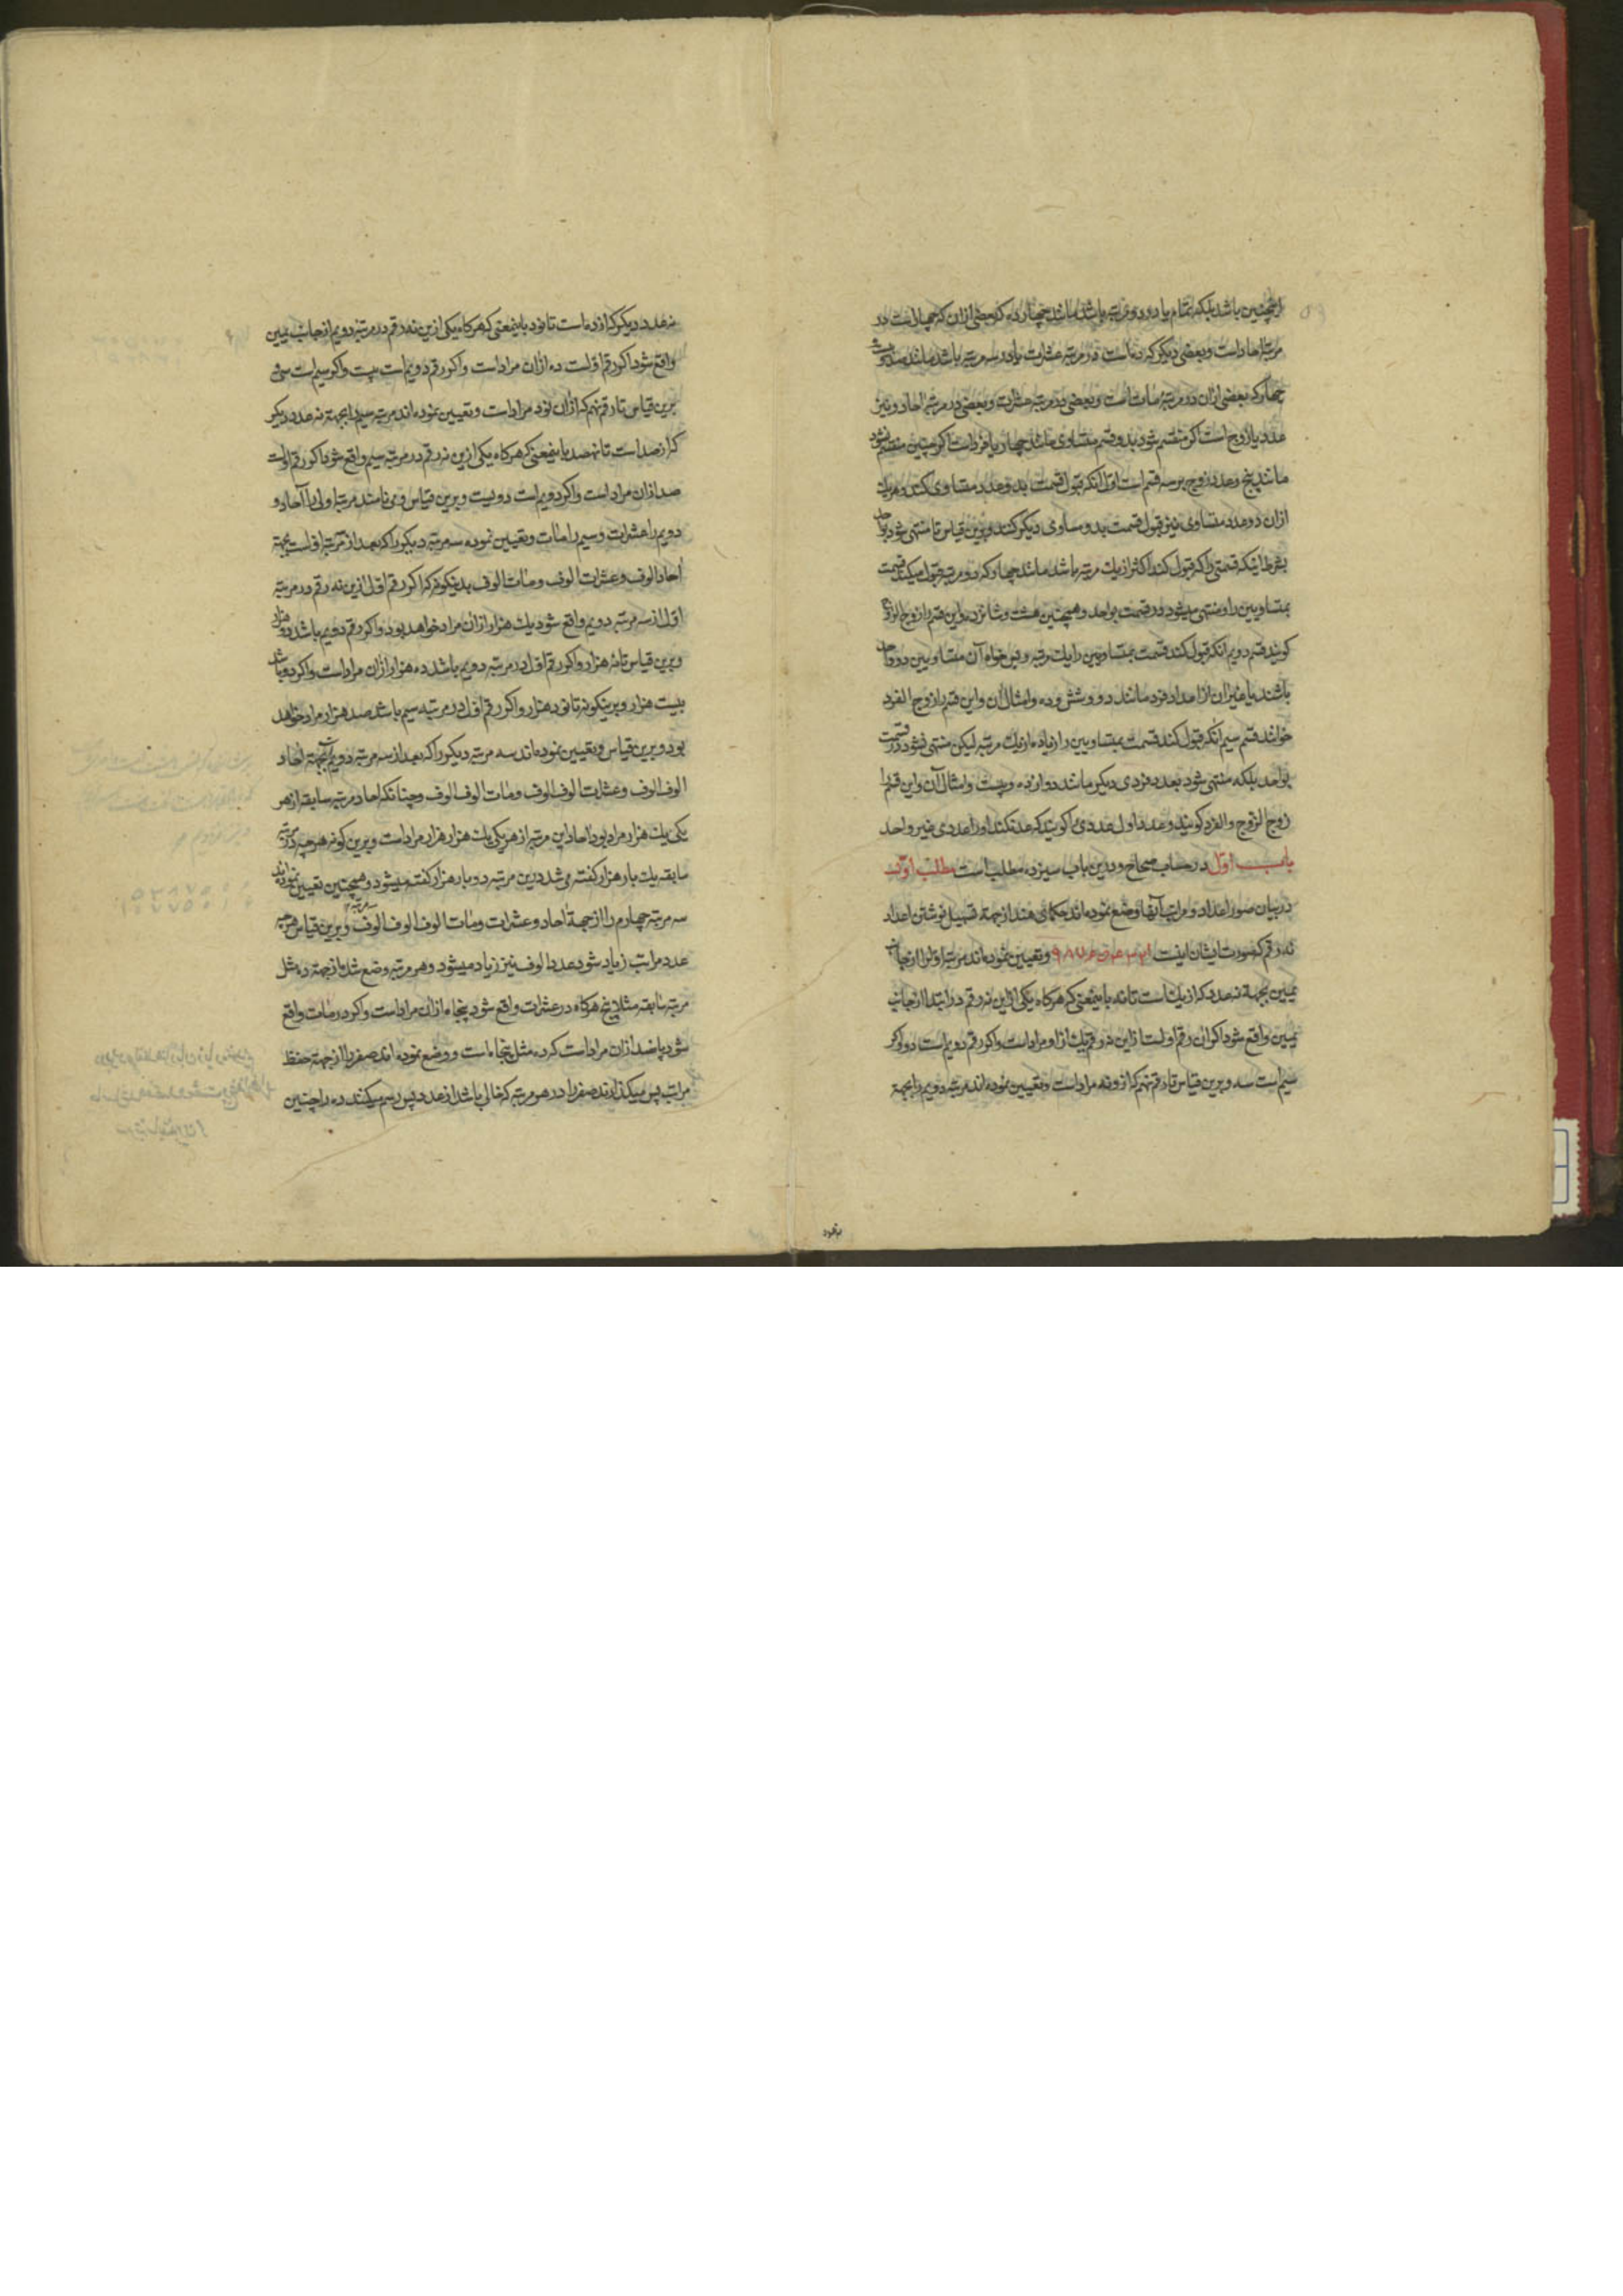 نه چنین باشد بلکه تمام یا در دو مرتبه باشد مانند چهارده که بعضی ازان که چهار است در
مرتبهٔ احاد است و بعضی دیگر که ده است در مرتبه عشرات یا در سه مرتبه باشد مانند صد و بیست
چهار که بعضی ازان در مرتبهٔ مات است و بعضی در مرتبه عشرات و بعضی در مرتبهٔ احاد و نیز
عدد یا زوج است اگر منقسم شود بدو قسم متساوی مانند چهار یا فرد است اگر چنین منقسم نشود
مانند پنج و عدد زوج بر سه قسم است اول انکه قبول قسمت بدو عدد متساوی کند و هر یک
ازان دو عدد متساوی نیز قبول قسمت بدو مساوی دیگر کنند و برین قیاس تا منتهی شود بواحد
بشرط اینکه قسمتی را که قبول کند اکثر از یک مرتبه باشد مانند چهار که دو مرتبه قبول میکند قسمت
بمتساویین را و منتهی میشود در قسمت بواحد و همچنین هشت و شانزده و این قسم را زوج الزوج
کویند قسم دویم انکه قبول کند قسمت بمتساویین را یک مرتبه و بس خواه آن متساویین دو واحد
باشند یا غیر ان از اعداد فرد مانند دو و شش و ده و امثال ان و این قسم را زوج الفرد
خوانند قسم سیم انکه قبول کند قسمت بمتساویین را زیاده از یک مرتبه لیکن منتهی نشود در قسمت
بواحد بلکه منتهی شود بعدد فردی دیگر مانند دوازده و بیست و امثال آن و این قسم را
زوج الزوج و الفرد کویند و عدد اول عددی را کویند که عد نکند او را عددی غیر واحد
باب اول در حساب صحاح و درین باب سیزده مطلب است مطلب اول
در بیان صور اعداد و مراتب آنها وضع نموده‌اند حکمای هند از جهة تسهیل نوشتن اعداد
نه رقم که صورت ایشان اینست ۱ ۲ ۳ ۴ ۵ ۶ ۷ ۸ ۹ و تعیین نموده‌اند مرتبه اول را از جانب
یمین بجهة نه عدد که از یک است تا نه باینمعنی که هرکاه یکی از این نه رقم در ابتدا از جانب
یمین واقع شود اکر ان رقم اول است از این نه رقم یک از او مراد است و اکر رقم دویم است دو و اکر
سیم است سه و برین قیاس تا رقم نهم که از و نه مراد است و تعیین نموده اند مرتبه دویم را بجهة
نه عدد دیکر که از ده است تا نود باینمعنی که هرکاه یکی از ین نه رقم در مرتبه دویم از جانب یمین
واقع شود اکر رقم اول است ده ازان مراد است و اکر رقم دویم است بیست و اکر سیم است سی
برین قیاس تا رقم نهم که ازان نود مراد است و تعیین نموده اند مرتبه سیم را بجهة نه عدد دیکر
که از صد است تا نهصد باینمعنی که هرکاه یکی از ین نه رقم در مرتبه سیم واقع شود اکر رقم اول است
صد ازان مراد است و اکر دویم است دویست و برین قیاس و می نامند مرتبه اولی را آحاد و
دویم را عشرات و سیم را مات و تعیین نموده سه مرتبه دیکر را که بعد از مرتبه اول است بجهة
احاد الوف و عشرات الوف و مات الوف بدینکونه که اکر رقم اول ازین نه رقم در مرتبه
اول از سه مرتبه دویم واقع شود یک هزار ازان مراد خواهد بود و اکر رقم دویم باشد دو هزار
و برین قیاس تا نه هزار و اکر رقم اول در مرتبه دویم باشد ده هزار ازان مراد است و اکر دو باشد
بیست هزار و برینکونه تا نود هزار و اکر رقم اول در مرتبه سیم باشد صد هزار مراد خواهد
بود و برین قیاس و تعیین نموده‌اند سه مرتبه دیکر را که بعد از سه مرتبه دویم است بجهة احاد
الوف الوف و عشرات الوف الوف و مات الوف الوف و چنانکه احاد مرتبه سابقه از هر
یکی یک هزار مراد بود احاد این مرتبه از هر یکی یک هزار هزار مراد است و برین کونه هر چه در مرتبه
سابقه یک بار هزار کفته می شد درین مرتبه دو بار هزار کفته میشود و همچنین تعیین نموده‌اند
سه مرتبه چهارم را از جهة احاد و عشرات و مات الوف الوف الوف و برین قیاس هر چه
عدد مراتب زیاد شود عدد الوف نیز زیاد میشود و هر مرتبه وضع شد از جهة ده مثل
مرتبه سابقه مثلا پنج هرکاه در عشرات واقع شود پنجاه ازان مراد است و اکر در مات واقع
شود پانصد ازان مراد است که ده مثل پنجاه است و وضع نموده اند صفر را از جهة حفظ
مراتب پس میکذارند صفر را در هر مرتبه که خالی باشد از عدد پس رسم میکنند ده را چنین
بنمود